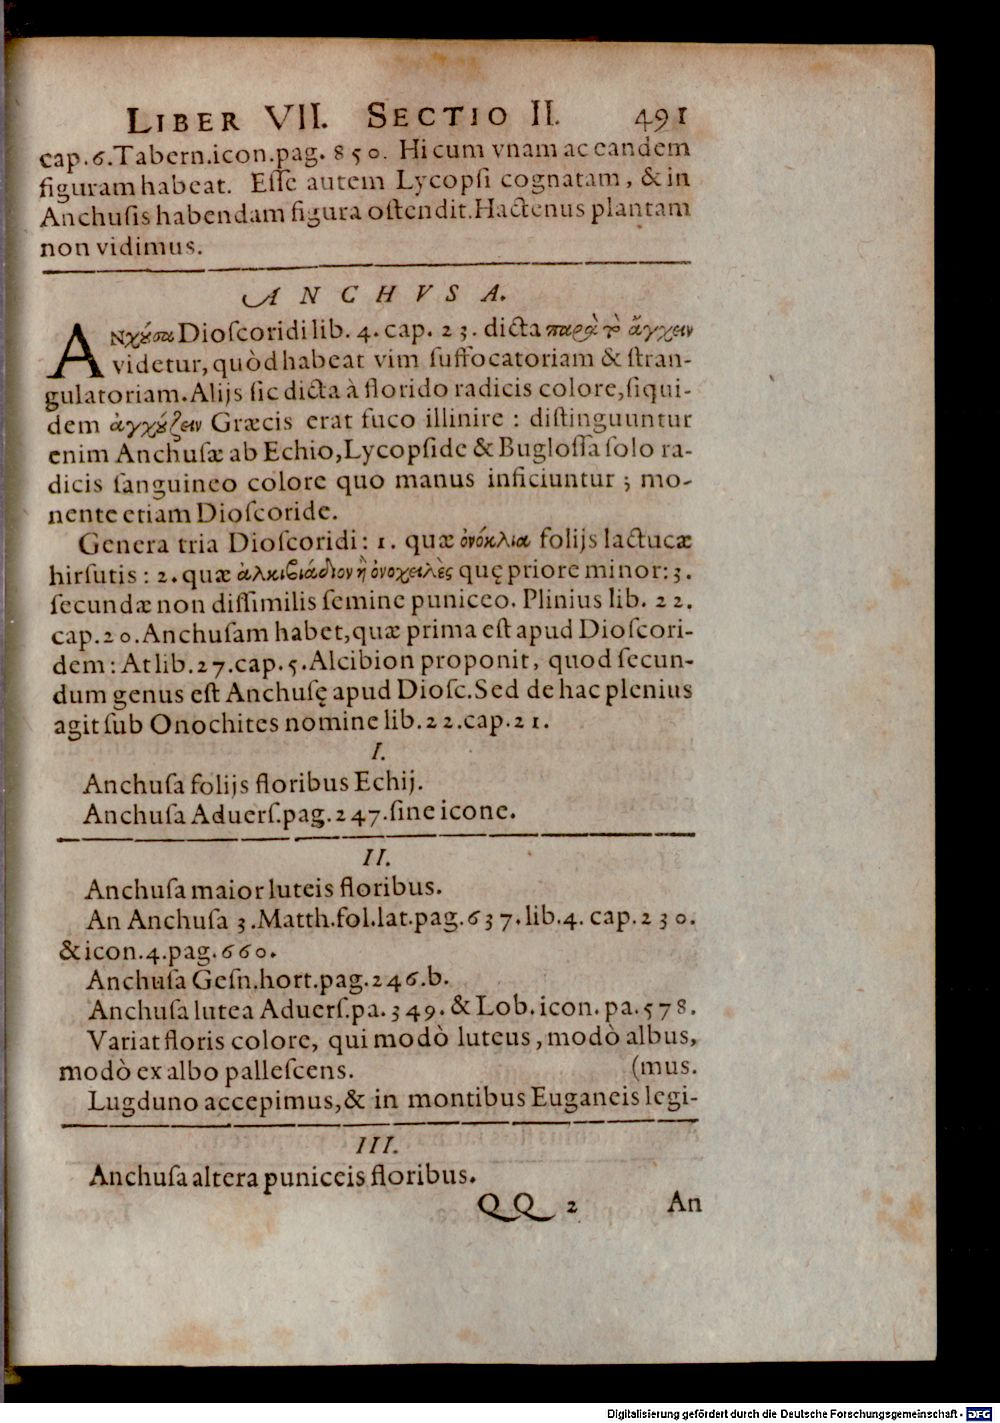 LIBER VII. SECTIO II. 491
cap.6.Tabern.icon.pag. 850. Hi cum vnam ac eandem
figuram habeat. Eſſe autem Lycopſi cognatam, & in
Anchuſis habendam figura oſtendit.Hactenus plantam
non vidimus.
ANCHVSA.
ΑΝχύσα Dioſcoridi lib. 4. cap. 23. dicta παρὰ τὸ ἄγχειν
videtur, quòd habeat vim ſuffocatoriam & ſtran-
gulatoriam. Alijs ſic dicta à florido radicis colore, ſiqui-
dem ἀγχύζειν Græcis erat fuco illinire : diſtinguuntur
enim Anchuſæ ab Echio, Lycopſide & Bugloſſa ſolo ra-
dicis ſanguineo colore quo manus inficiuntur ; mo-
nente etiam Dioſcoride.
Genera tria Dioſcoridi : 1. quæ ὀνόκλια folijs lactucæ
hirſutis : 2. quæ ἀλκιβιάδιον ἢ ὀνοχειλὲς quę priore minor: 3.
ſecundæ non diſſimilis ſemine puniceo. Plinius lib. 22.
cap.20. Anchuſam habet, quæ prima eſt apud Dioſcori-
dem : At lib.27.cap.5. Alcibion proponit, quod ſecun-
dum genus eſt Anchuſę apud Dioſc. Sed de hac plenius
agit ſub Onochites nomine lib.22.cap.21.
I.
Anchuſa folijs floribus Echij.
Anchuſa Aduerſ.pag.247.ſine icone.
II.
Anchuſa maior luteis floribus.
An Anchuſa 3.Matth.fol.lat.pag.637.lib.4. cap.230.
& icon.4.pag.660.
Anchuſa Geſn.hort.pag.246.b.
Anchuſa lutea Aduerſ.pa.349. & Lob.icon.pa.578.
Variat floris colore, qui modò luteus, modò albus,
modò ex albo palleſcens. (mus.
Lugduno accepimus, & in montibus Euganeis legi-
III.
Anchuſa altera puniceis floribus.
QQ 2 An
Digitalisierung gefördert durch die Deutsche Forschungsgemeinschaft - DFG